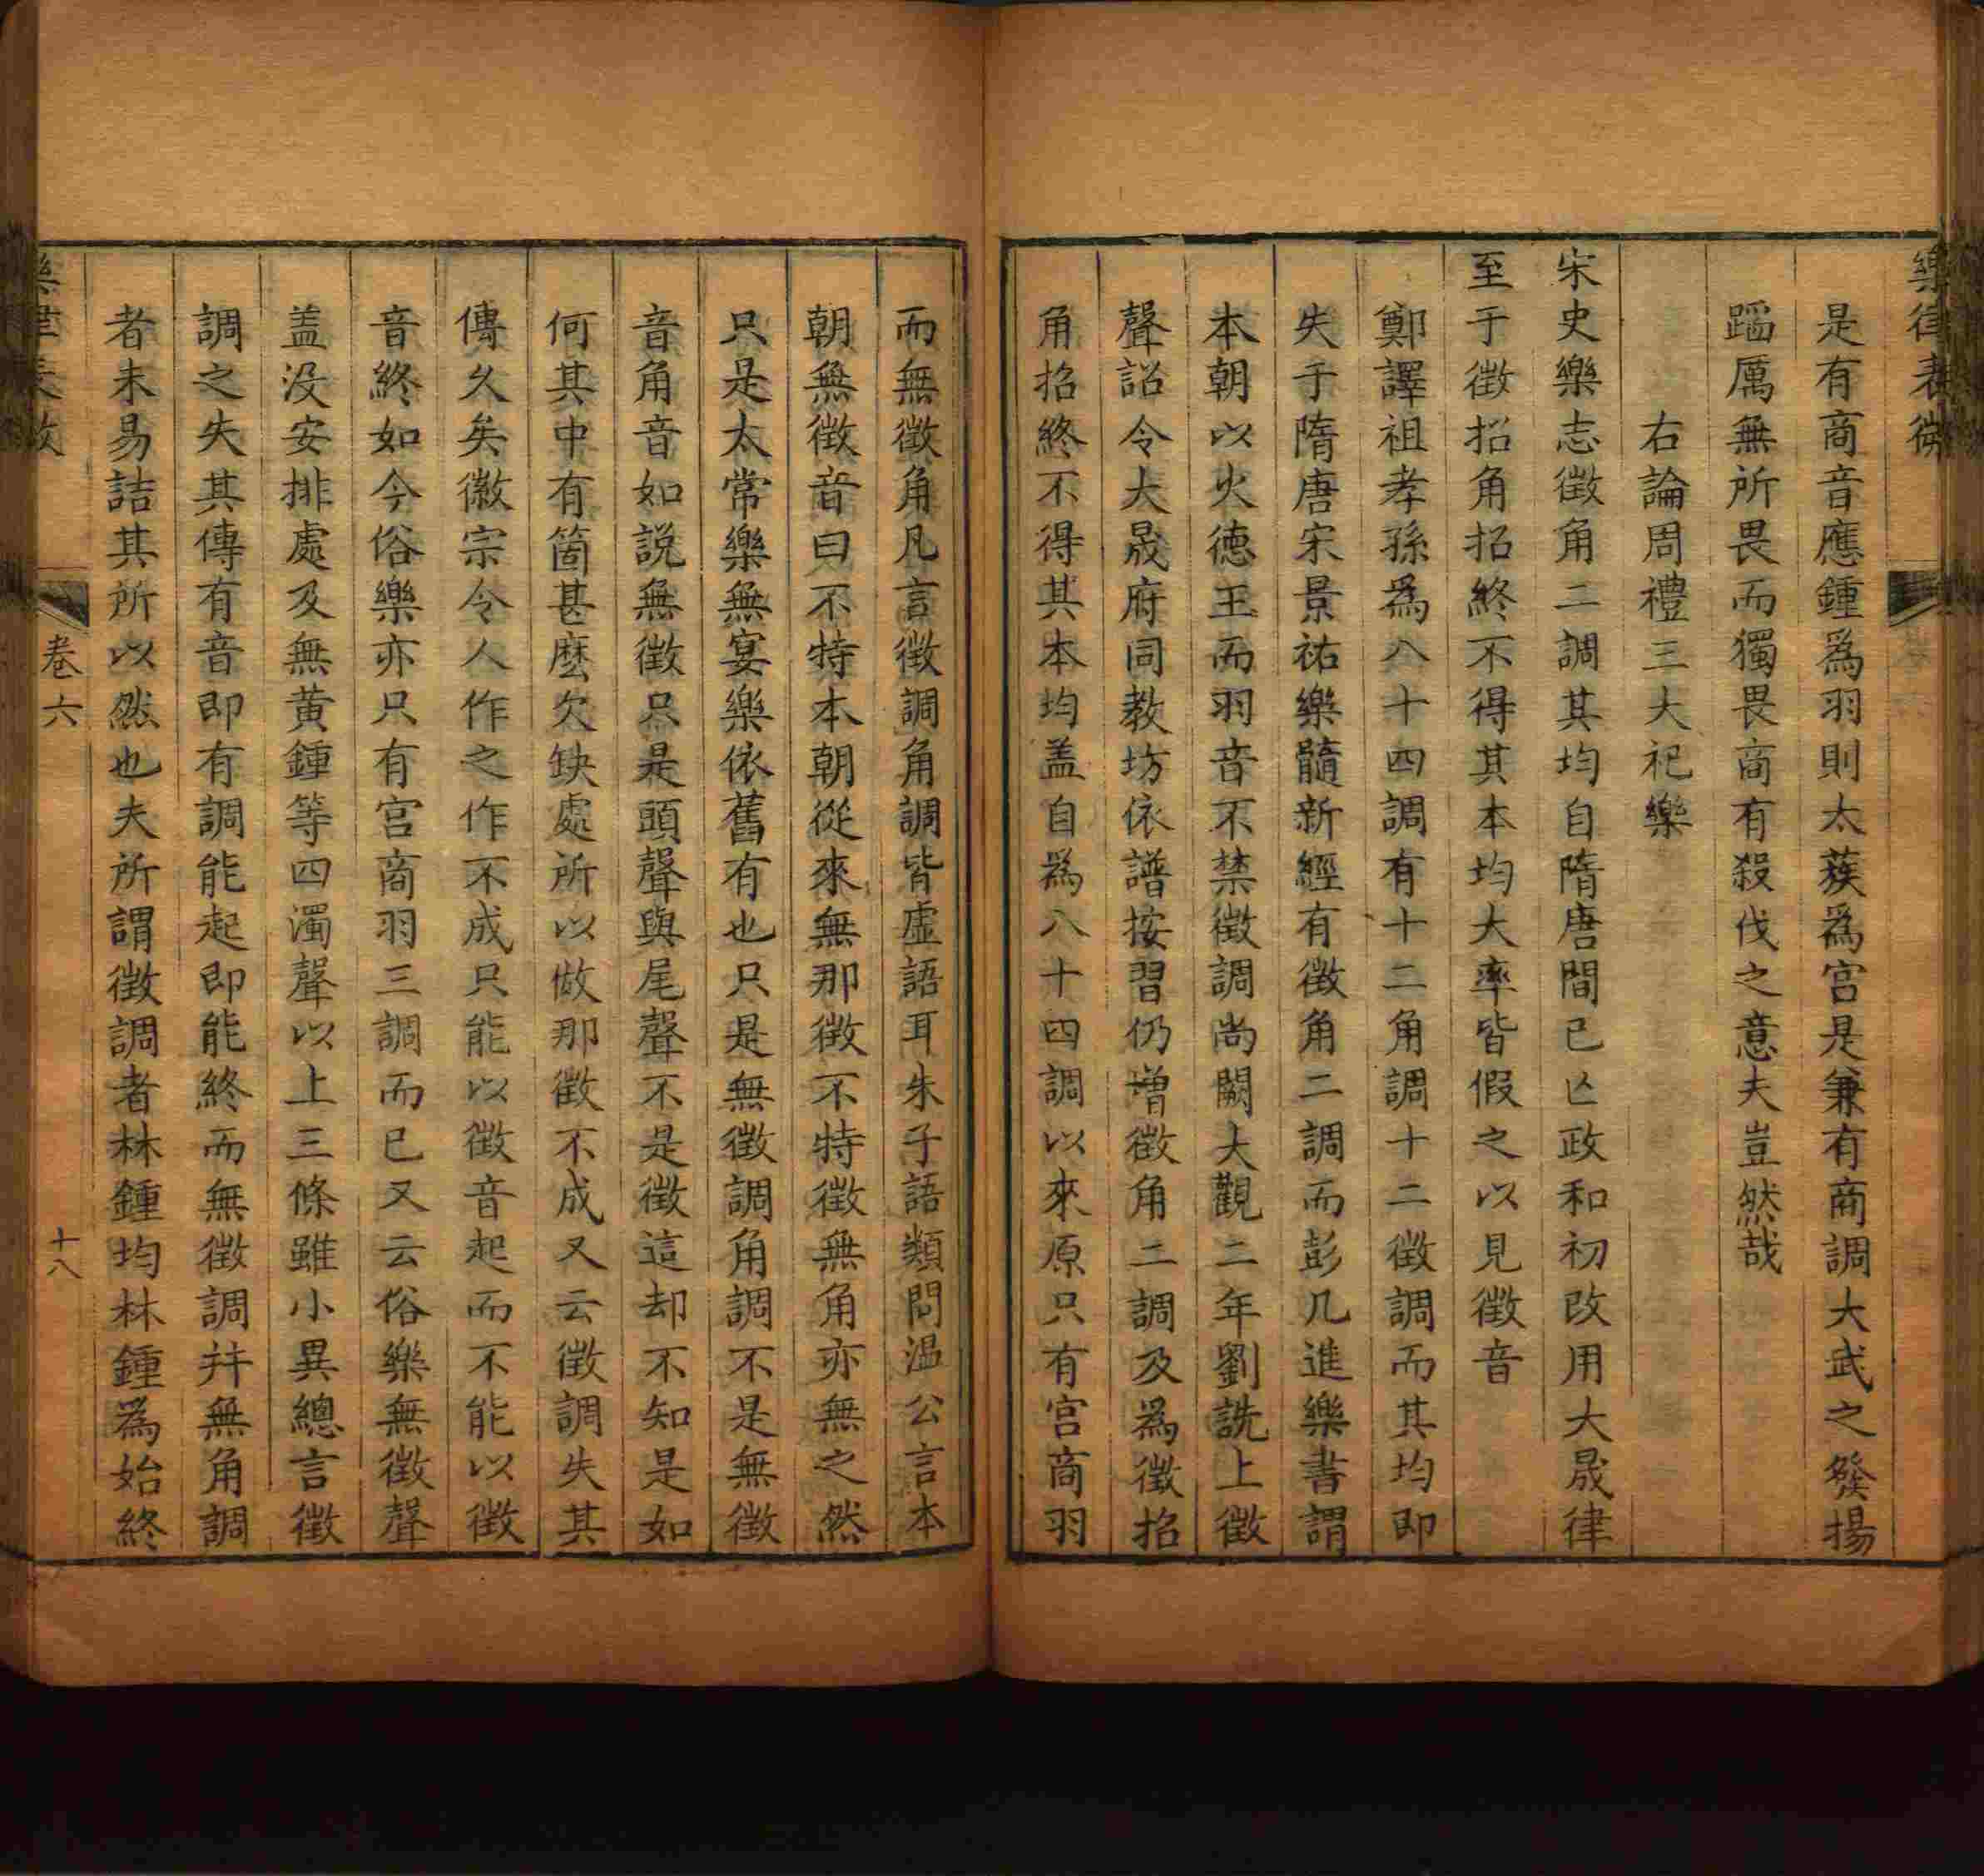 樂律表微
是有商音應鍾為羽則太蔟為宮是兼有商調大武之發揚
蹈厲無所畏而獨畏商有殺伐之意夫豈然哉
右論周禮三大祀樂
宋史樂志徵角二調其均自隋唐間已亾政和初改用大晟律
至于徵招角招終不得其本均大率皆假之以見徵音
鄭譯祖孝孫為八十四調有十二角調十二徵調而其均即
失于隋唐宋景祐樂髓新經有徵角二調而彭几進樂書謂
本朝以火德王而羽音不禁徵調尚闕大觀二年劉詵上徵
聲詔令大晟府同教坊依譜按習仍增徵角二調及為徵招
角招終不得其本均盖自為八十四調以來原只有宮商羽
而無徵角凡言徵調角調皆虛語耳朱子語類問温公言本
朝無徵音曰不特本朝從來無那徵不特徵無角亦無之然
只是太常樂無宴樂依舊有也只是無徵調角調不是無徵
音角音如説無徵只是頭聲與尾聲不是徵這却不知是如
何其中有箇甚麽欠缺處所以做那徵不成又云徵調失其
傳久矣徽宗令人作之作不成只能以徵音起而不能以徵
音終如今俗樂亦只有宮商羽三調而已又云俗樂無徵聲
盖没安排處及無黄鍾等四濁聲以上三條雖小異總言徵
調之失其傳有音即有調能起即能終而無徵調并無角調
者未易詰其所以然也夫所謂徵調者林鍾均林鍾為始終
樂律表微
卷六
十八